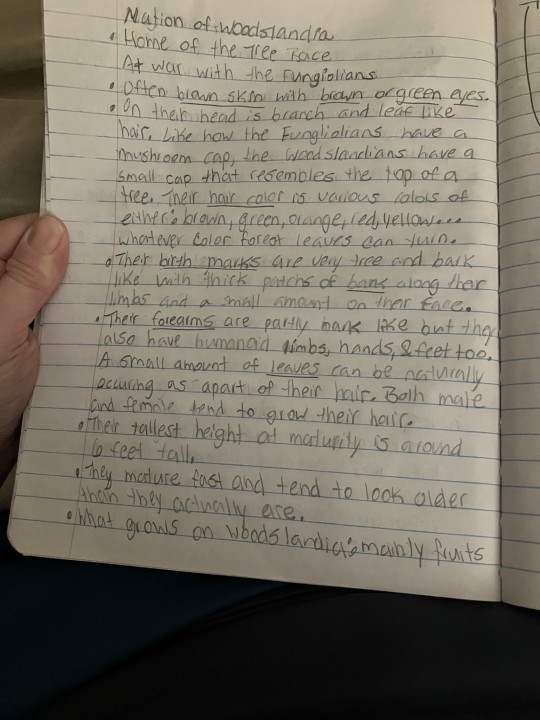 Nation of Woodslandia
• Home of the Tree Race
At war with the Fungiolians
• Often brown skin with brown or green eyes.
• On their head is branch and leaf like
hair. Like how the Fungliolians have a
mushroom cap, the Woodslandians have a
small cap that resembles the top of a
tree. Their hair color is various colors of
either: brown, green, orange, red, yellow...
whatever color forest leaves can turn.
• Their birth marks are very tree and bark
like with thick patchs of bark along ther
limbs and a small amount on their face.
• Their forearms are partly bark like but they
also have humanoid limbs, hands, & feet too.
A small amount of leaves can be naturally
occuring as apart of their hair. Both male
and female tend to grow their hair.
• Their tallest height at maturity is around
6 feet tall.
• They mature fast and tend to look older
than they actually are.
• What grows on Woodslandia: mainly fruits